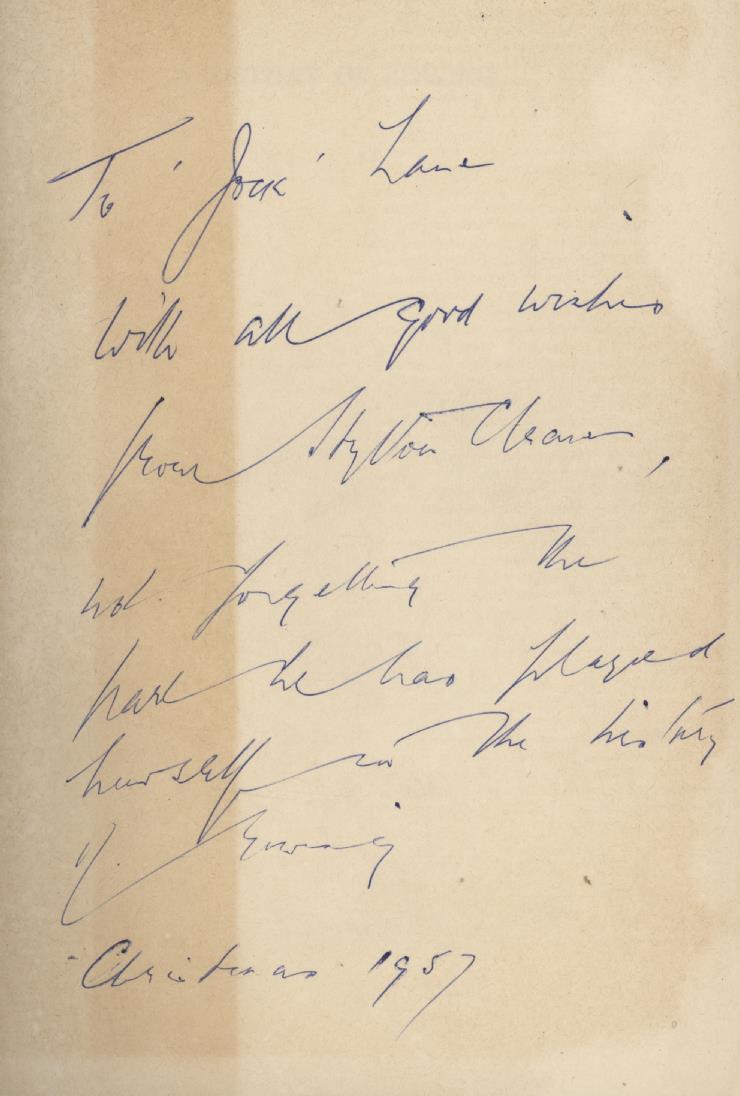 To 'Jock' Lane
with all good wishes
from Hylton Cleaver,
not forgetting the
part he has played
himself in the history
of Rowing
Christmas 1957